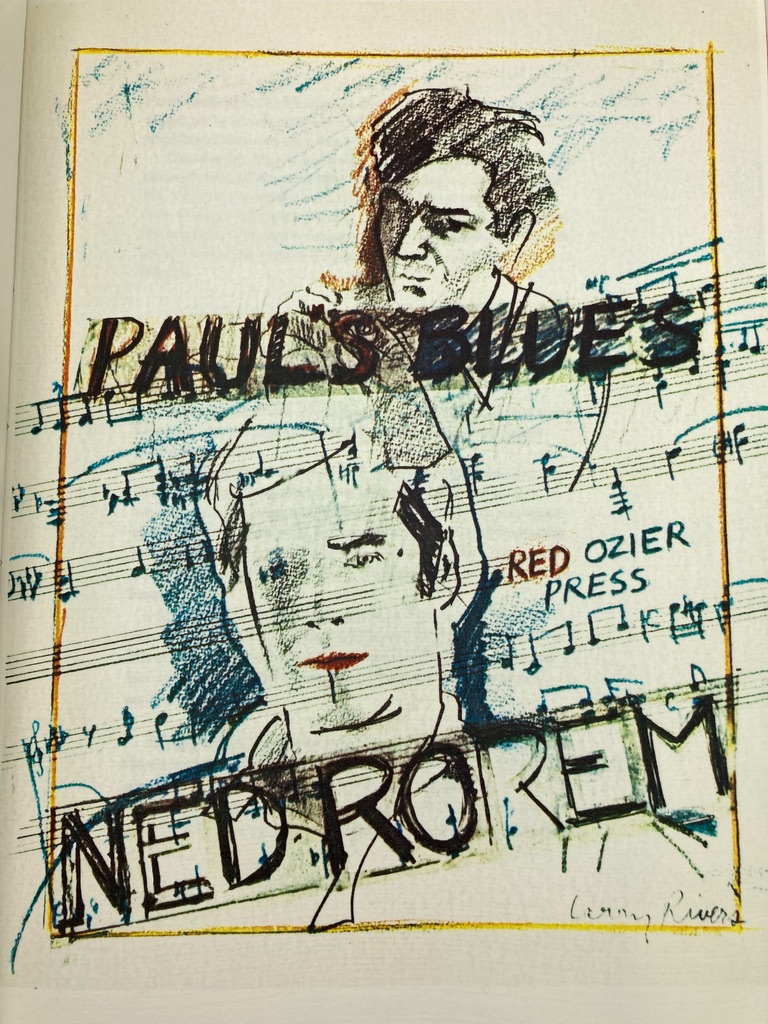 PAUL'S BLUES
RED OZIER
PRESS
NED ROREM
Larry Rivers